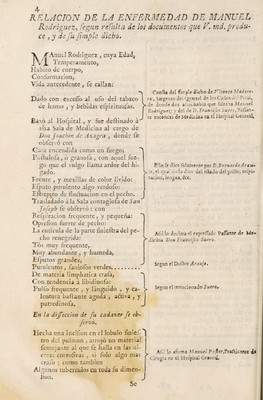 4
RELACION DE LA ENFERMEDAD DE MANUEL
Rodriguez, segun resulta de los documentos que V. md. produ-
ce, y de su simple dicho.
Manuel Rodriguez, cuya Edad,
Temperamento,
Habito de cuerpo,
Conformacion,
Vida antecedente, se callan:
Dado con excesso al uso del tabaco
de humo, y bebidas espirituosas.
Baxó al Hospital, y fue destinado à
una Sala de Medicina al cargo de
Don Joachin de Anagra, donde se
observó con
Cara encendida como un fuego
Postulosa, ò granosa, con aquel fue-
go que el vulgo llama ardor del hi-
gado.
Frente, y mexillas de color livido:
Esputo purulento algo verdoso:
Estrepito de fluctuacion en el pecho.
Trasladado à la Sala contagiosa de San
Joseph se observó: con
Respiracion frequente, y pequeña:
Opresion fuerte de pecho:
La cutícula de la parte siniestra del pe-
cho renegrida:
Tos muy frequente,
Muy abundante, y humeda,
Esputos grandes,
Purulentos, saniosos verdes
De materia limphatica crasa,
Con tendencia à libidinosa:
Pulso frequente, y languido, y ca-
lentura bastante aguda, activa, y
putredinosa.
En la diseccion de su cadaver se ob-
servó.
Hecha una incision en el lobulo sinies-
tro del pulmon, arrojó un material
semejante al que se halla en las ul-
ceras corrosivas, si solo algo mas
craso; como tambien
Algunos tuberculos en toda su dimen-
sion.
Se
Consta del simple dicho de Vicente
de donde
Rodriguez; y del de D. Francisco Suero,
de Medicina en el Hospital General.
Assi lo declara el expressado Passante de Me-
dicina Don Francisco Suero.
Segun el Doctor Araujo.
Segun el mencionado Suero.
Assi lo afirma Manuel Practicante de
Cirugia en el Hospital General.